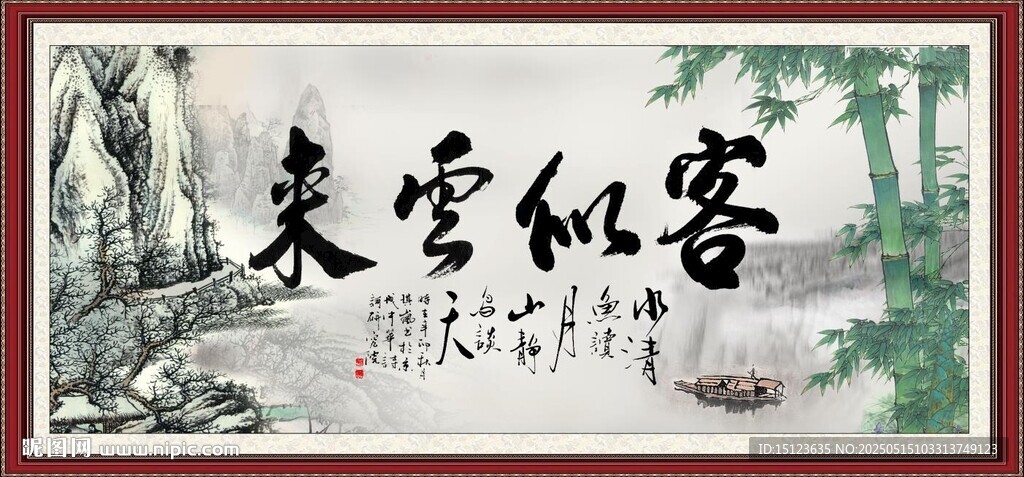 客似雲来
水清
魚讀
月
山靜
鳥談
天
昵图网 www.nipic.com
ID:15123635 NO:20250515103313749123